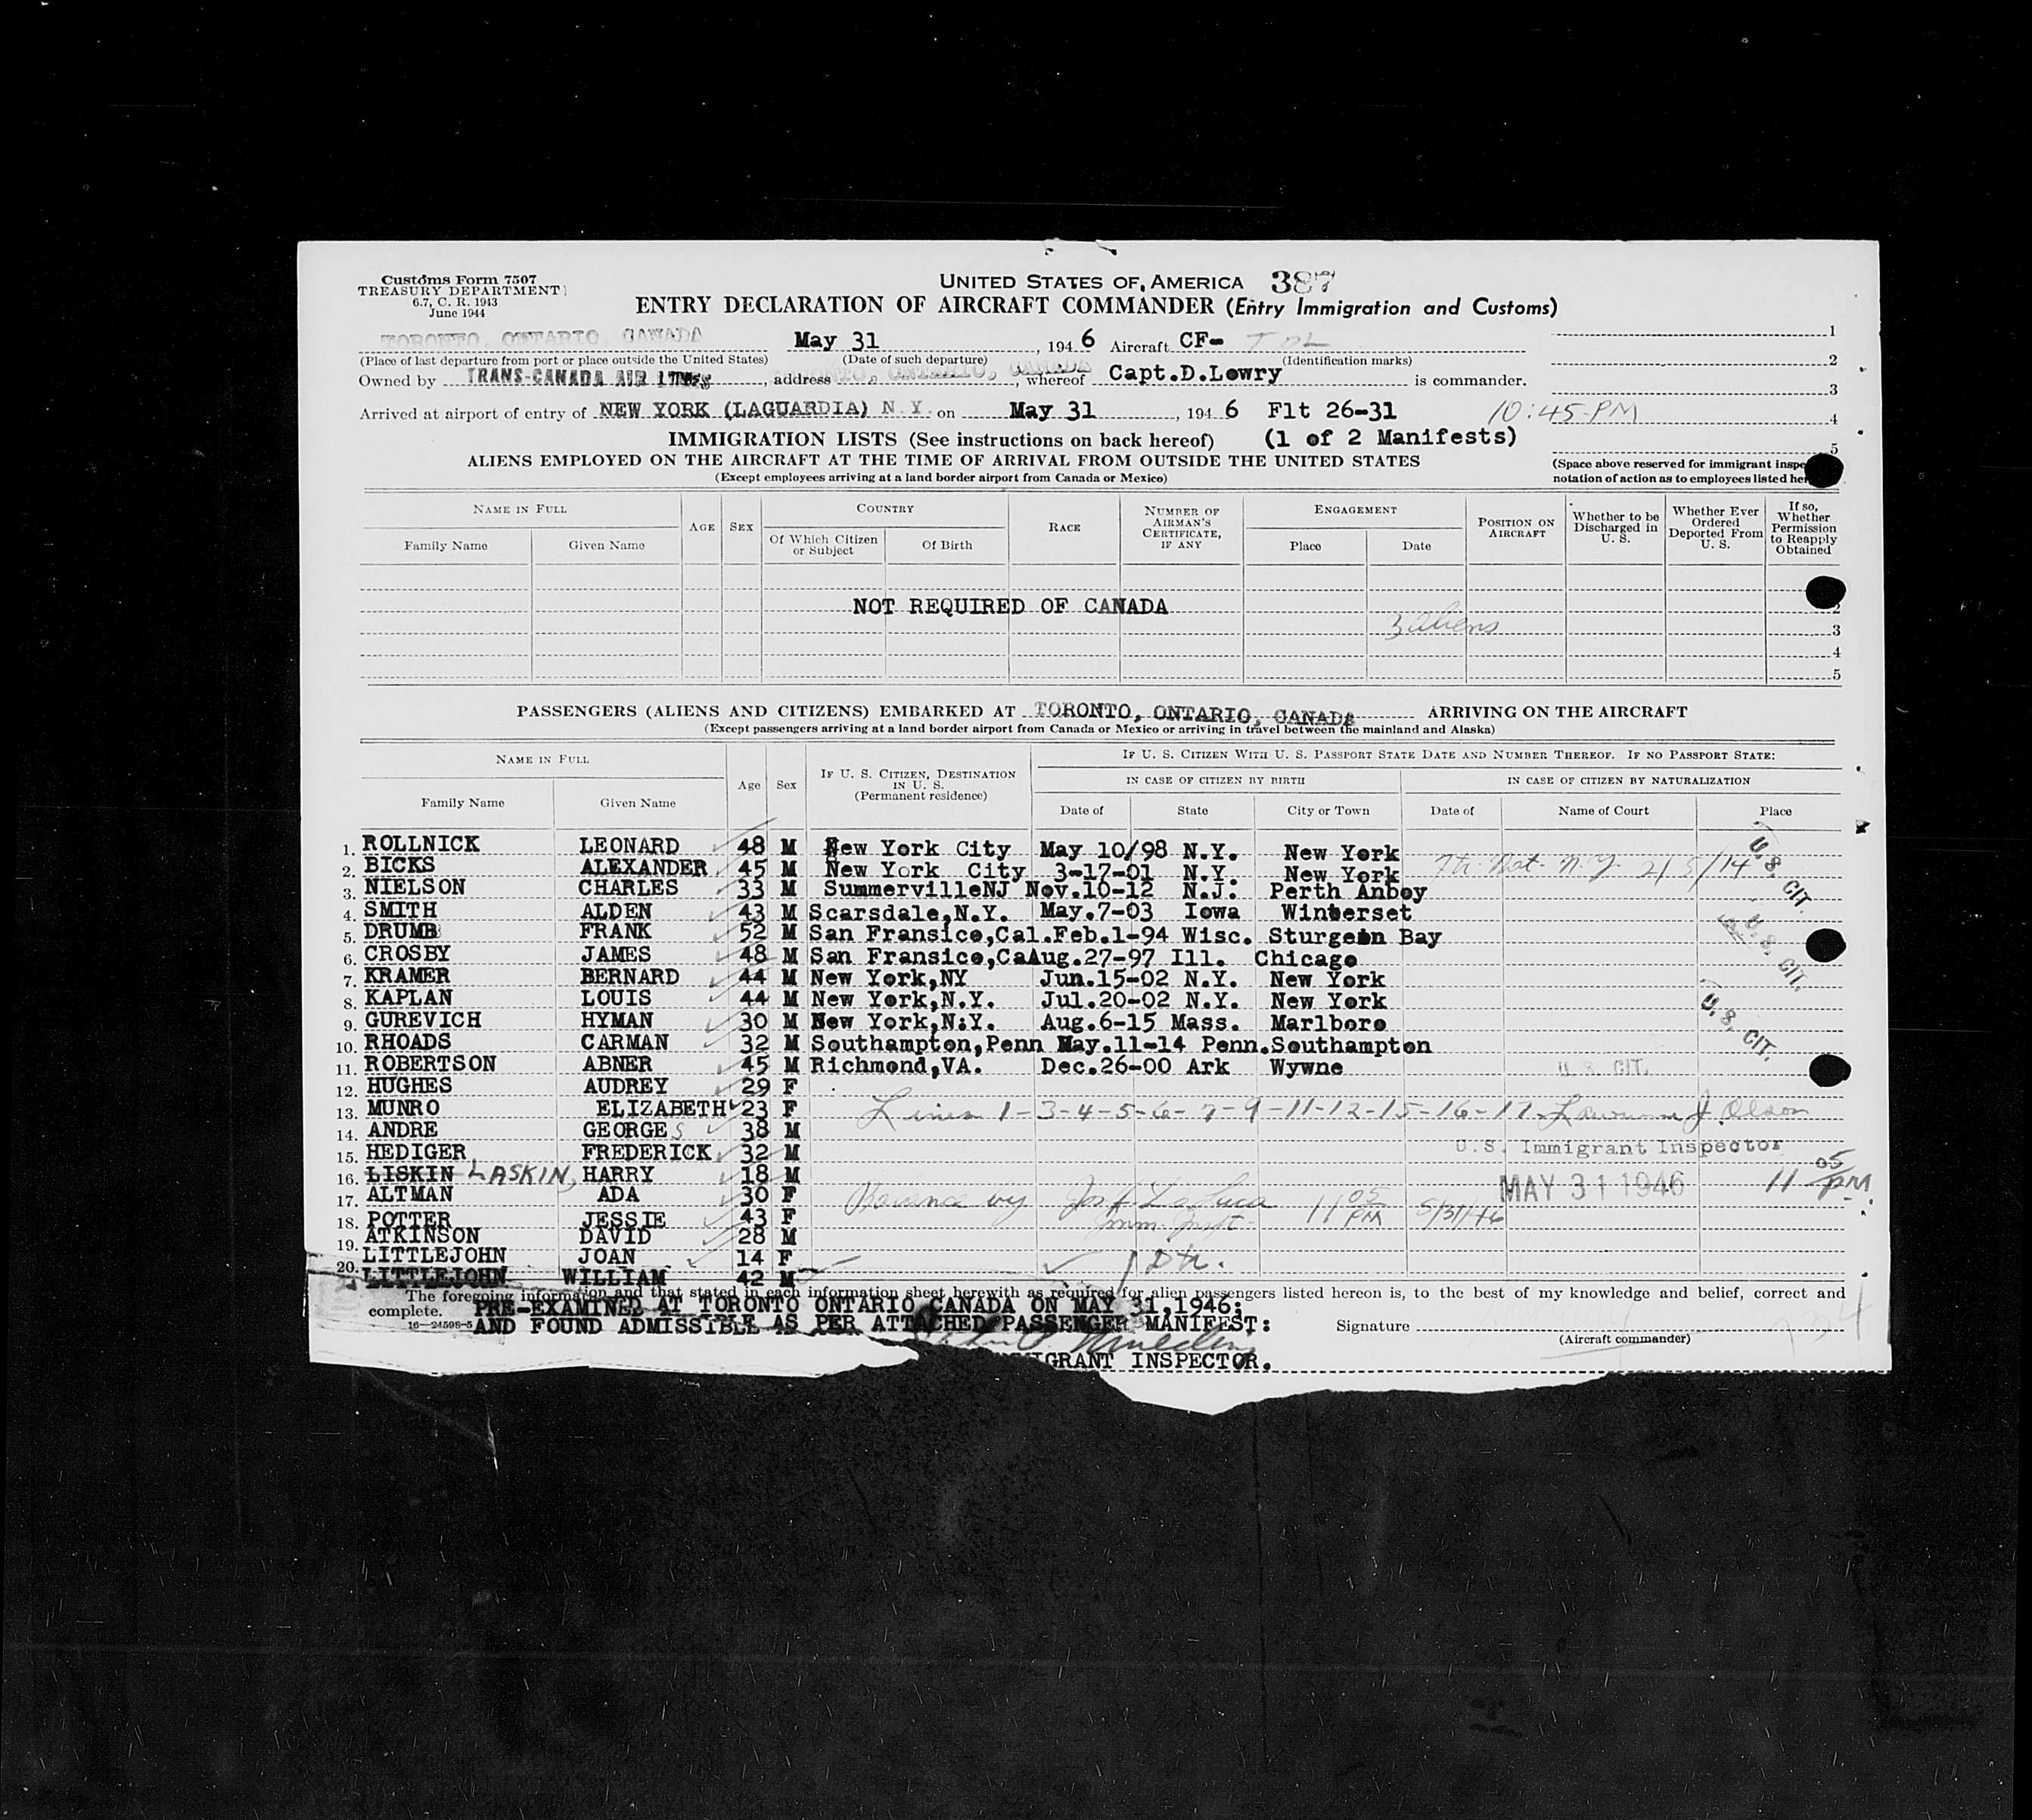 Customs Form 7507
TREASURY DEPARTMENT
6.7, C. R. 1943
June 1944
UNITED STATES OF AMERICA 387
ENTRY DECLARATION OF AIRCRAFT COMMANDER (Entry Immigration and Customs)
TORONTO, ONTARIO, CANADA May 31, 1946 Aircraft CF- TOL 1
(Place of last departure from port or place outside the United States) (Date of such departure) (Identification marks) 2
Owned by TRANS-CANADA AIR LINES, address TORONTO, ONTARIO, CANADA, whereof Capt.D.Lowry is commander. 3
Arrived at airport of entry of NEW YORK (LAGUARDIA) N.Y. on May 31, 1946 Flt 26-31 10:45 PM 4
IMMIGRATION LISTS (See instructions on back hereof) (1 of 2 Manifests) 5
ALIENS EMPLOYED ON THE AIRCRAFT AT THE TIME OF ARRIVAL FROM OUTSIDE THE UNITED STATES
(Space above reserved for immigrant
(Except employees arriving at a land border airport from Canada or Mexico)
notation of action as to employees listed
NAME IN FULL AGE SEX COUNTRY RACE NUMBER OF AIRMAN'S CERTIFICATE, IF ANY ENGAGEMENT POSITION ON AIRCRAFT Whether to be Discharged in U. S. Whether Ever Ordered Deported From U. S. If so, Whether Permission to Reapply Obtained
Family Name Given Name Of Which Citizen or Subject Of Birth Place Date
NOT REQUIRED OF CANADA 2
3 aliens 3
4
5
PASSENGERS (ALIENS AND CITIZENS) EMBARKED AT TORONTO, ONTARIO, CANADA ARRIVING ON THE AIRCRAFT
(Except passengers arriving at a land border airport from Canada or Mexico or arriving in travel between the mainland and Alaska)
NAME IN FULL Age Sex IF U. S. CITIZEN, DESTINATION IN U. S. (Permanent residence) IF U. S. CITIZEN WITH U. S. PASSPORT STATE DATE AND NUMBER THEREOF. IF NO PASSPORT STATE:
IN CASE OF CITIZEN BY BIRTH IN CASE OF CITIZEN BY NATURALIZATION
Family Name Given Name Date of State City or Town Date of Name of Court Place
1. ROLLNICK LEONARD 48 M New York City May 10/98 N.Y. New York U.S. CIT.
2. BICKS ALEXANDER 45 M New York City 3-17-01 N.Y. New York N.Y. 2/5/14
3. NIELSON CHARLES 33 M SummervilleNJ Nov.10-12 N.J: Perth Anboy
4. SMITH ALDEN 43 M Scarsdale,N.Y. May.7-03 Iowa Winterset U.S. CIT.
5. DRUMB FRANK 52 M San Fransico,Cal.Feb.1-94 Wisc. Sturgeon Bay
6. CROSBY JAMES 48 M San Fransico,CaAug.27-97 Ill. Chicago
7. KRAMER BERNARD 44 M New York,NY Jun.15-02 N.Y. New York
8. KAPLAN LOUIS 44 M New York,N.Y. Jul.20-02 N.Y. New York U.S. CIT.
9. GUREVICH HYMAN 30 M New York,N:Y. Aug.6-15 Mass. Marlboro
10. RHOADS CARMAN 32 M Southampton,Penn May.11-14 Penn.Southampton
11. ROBERTSON ABNER 45 M Richmond,VA. Dec.26-00 Ark Wywne U.S. CIT.
12. HUGHES AUDREY 29 F
13. MUNRO ELIZABETH 23 F Lines 1-3-4-5-6-7-9-11-12-15-16-17 J. Olson
14. ANDRE GEORGES 38 M
15. HEDIGER FREDERICK 32 M U.S. Immigrant Inspector
16. LISKIN LASKIN, HARRY 18 M MAY 31 1946 11 05 PM
17. ALTMAN ADA 30 F Balance by Jos. A. LaLuca 11 05 PM 5/31/46
18. POTTER JESSIE 43 F Imm. Inspt.
ATKINSON DAVID 28 M
19. LITTLEJOHN JOAN 14 F
20. LITTLEJOHN WILLIAM 42 M
The foregoing information and that stated in each information sheet herewith as required for alien passengers listed hereon is, to the best of my knowledge and belief, correct and
complete. PRE-EXAMINED AT TORONTO ONTARIO CANADA ON MAY 31,1946;
16—24598-5 AND FOUND ADMISSIBLE AS PER ATTACHED PASSENGER MANIFEST: Signature
(Aircraft commander)
IMMIGRANT INSPECTOR.